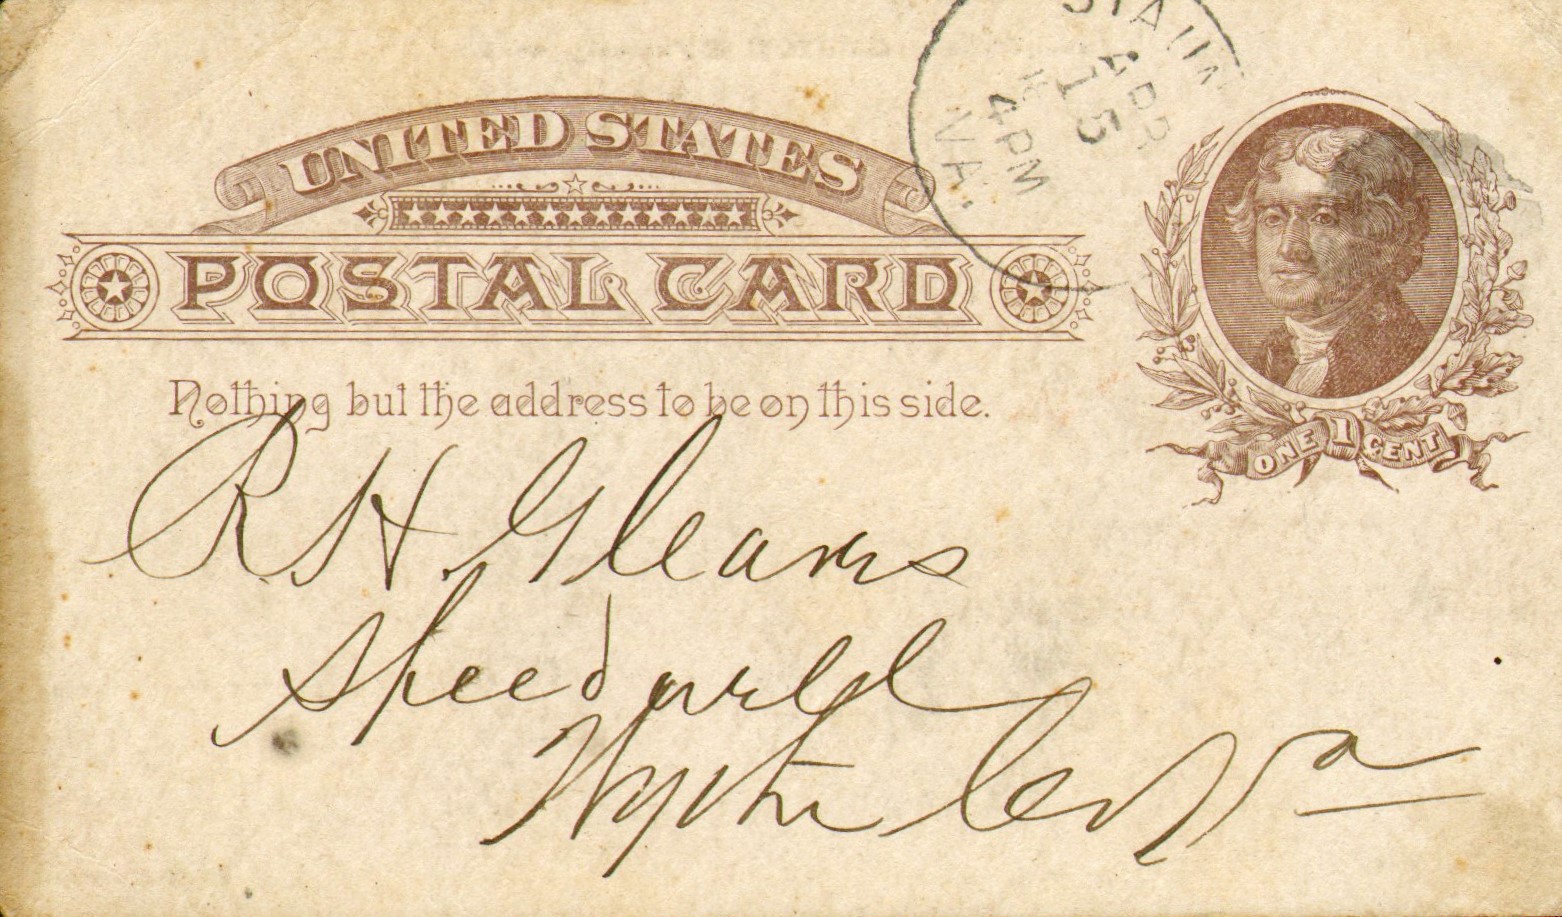 UNITED STATES
POSTAL CARD
Nothing but the address to be on this side.
STAUN
APR
15
4PM
VA.
ONE 1 CENT
R H Gleaves
Speedwell
Wythe Co Va